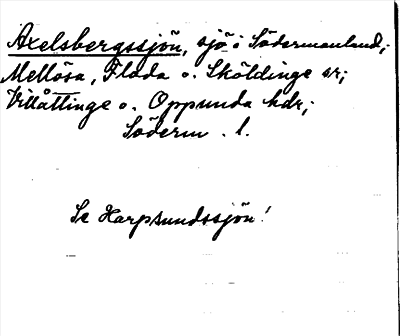 Axelsbergssjön, sjö i Södermanland;
Mellösa, Floda o. Sköldinge sr;
Villåttinge o. Oppunda hdr;
Söderm. l.
Se Harpsundssjön!